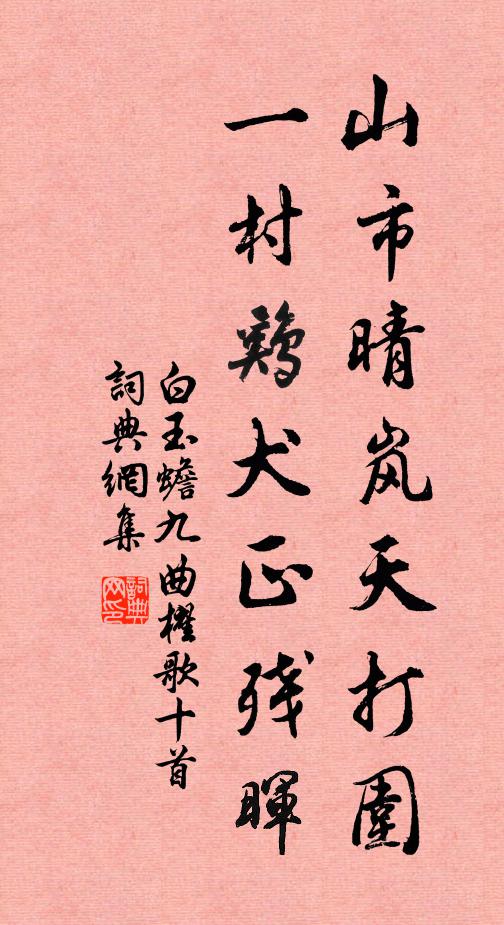 山市晴岚天打圍
一村鷄犬正残暉
白玉蟾九曲櫂歌十首
詞典網集
詞典網印